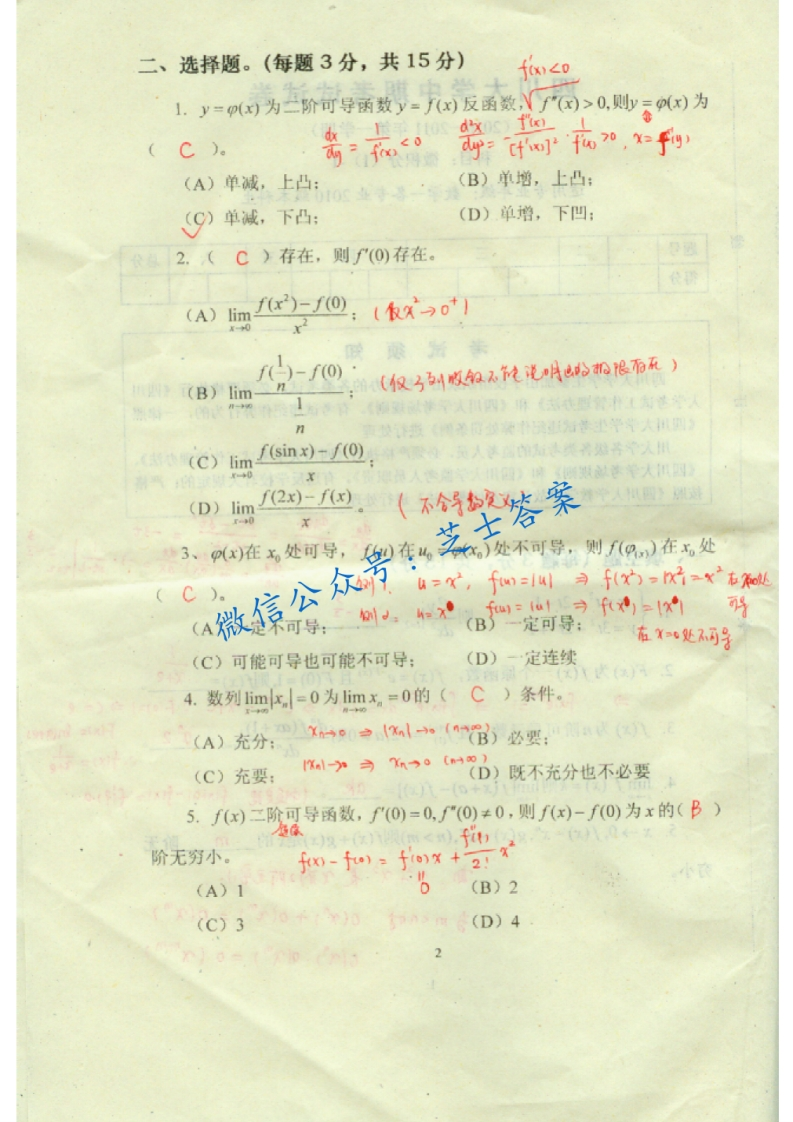 二、选择题。(每题 3 分，共 15 分)
f'(x)<0
1. y=φ(x) 为二阶可导函数 y=f(x) 反函数, √ f''(x)>0,则y=φ(x) 为
( C )。 dx/dy = 1/f'(x) <0 d²x/dy² = -f''(x)/[f'(x)]² · 1/f'(x) >0,
(A) 单减，上凸; (B) 单增，上凸;
(C) 单减，下凸; (D) 单增，下凹;
2. ( C ) 存在，则 f'(0) 存在。
(A) lim x→0 (f(x²)-f(0))/x² ; (仅x²→0⁺)
(B) lim n→∞ (f(1/n)-f(0))/(1/n) ;
(C) lim x→0 (f(sin x)-f(0))/x ;
(D) lim x→0 (f(2x)-f(x))/x 。 (不合导数定义)
3、φ(x)在 x₀ 处可导， f(u) 在 u₀=φ(x₀) 处不可导，则 f(φ(x)) 在 x₀ 处
( C )。 例1. u=x², f(u)=|u| ⇒ f(x²)=|x²|=x² 在x=0处可导
例2. u=x f(u)=|u| ⇒ f(x)=|x| 在x=0处不可导
(A) 一定不可导; (B) 一定可导;
(C) 可能可导也可能不可导; (D) 一定连续
4. 数列 lim x→∞ |xₙ|=0 为 lim n→∞ xₙ=0 的 ( C ) 条件。
(A) 充分; xₙ→0 ⇒ |xₙ|→0 (n→∞) (B) 必要;
(C) 充要; |xₙ|→0 ⇒ xₙ→0 (n→∞) (D) 既不充分也不必要
5. f(x) 二阶可导函数，f'(0)=0, f''(0)≠0，则 f(x)-f(0) 为 x 的( B )
阶无穷小。 f(x)-f(0) = f'(0)x + f''(ξ)/2! x²
(A) 1 0 (B) 2
(C) 3 (D) 4
2
微信公众号：芝士答案